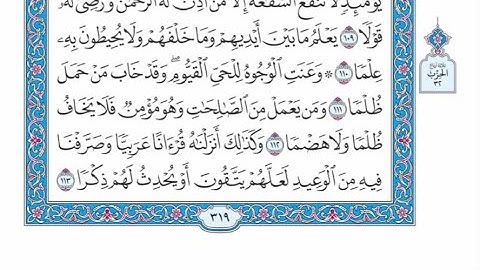 يَوْمَئِذٍ لَّا تَنفَعُ ٱلشَّفَٰعَةُ إِلَّا مَنْ أَذِنَ لَهُ ٱلرَّحْمَٰنُ وَرَضِىَ لَهُۥ
قَوْلًا ١٠٩ يَعْلَمُ مَا بَيْنَ أَيْدِيهِمْ وَمَا خَلْفَهُمْ وَلَا يُحِيطُونَ بِهِۦ
عِلْمًا ١١٠ ۞ وَعَنَتِ ٱلْوُجُوهُ لِلْحَىِّ ٱلْقَيُّومِ ۖ وَقَدْ خَابَ مَنْ حَمَلَ
ظُلْمًا ١١١ وَمَن يَعْمَلْ مِنَ ٱلصَّٰلِحَٰتِ وَهُوَ مُؤْمِنٌ فَلَا يَخَافُ
ظُلْمًا وَلَا هَضْمًا ١١٢ وَكَذَٰلِكَ أَنزَلْنَٰهُ قُرْءَانًا عَرَبِيًّا وَصَرَّفْنَا
فِيهِ مِنَ ٱلْوَعِيدِ لَعَلَّهُمْ يَتَّقُونَ أَوْ يُحْدِثُ لَهُمْ ذِكْرًا ١١٣
٣١٩
الحزب
٣٢